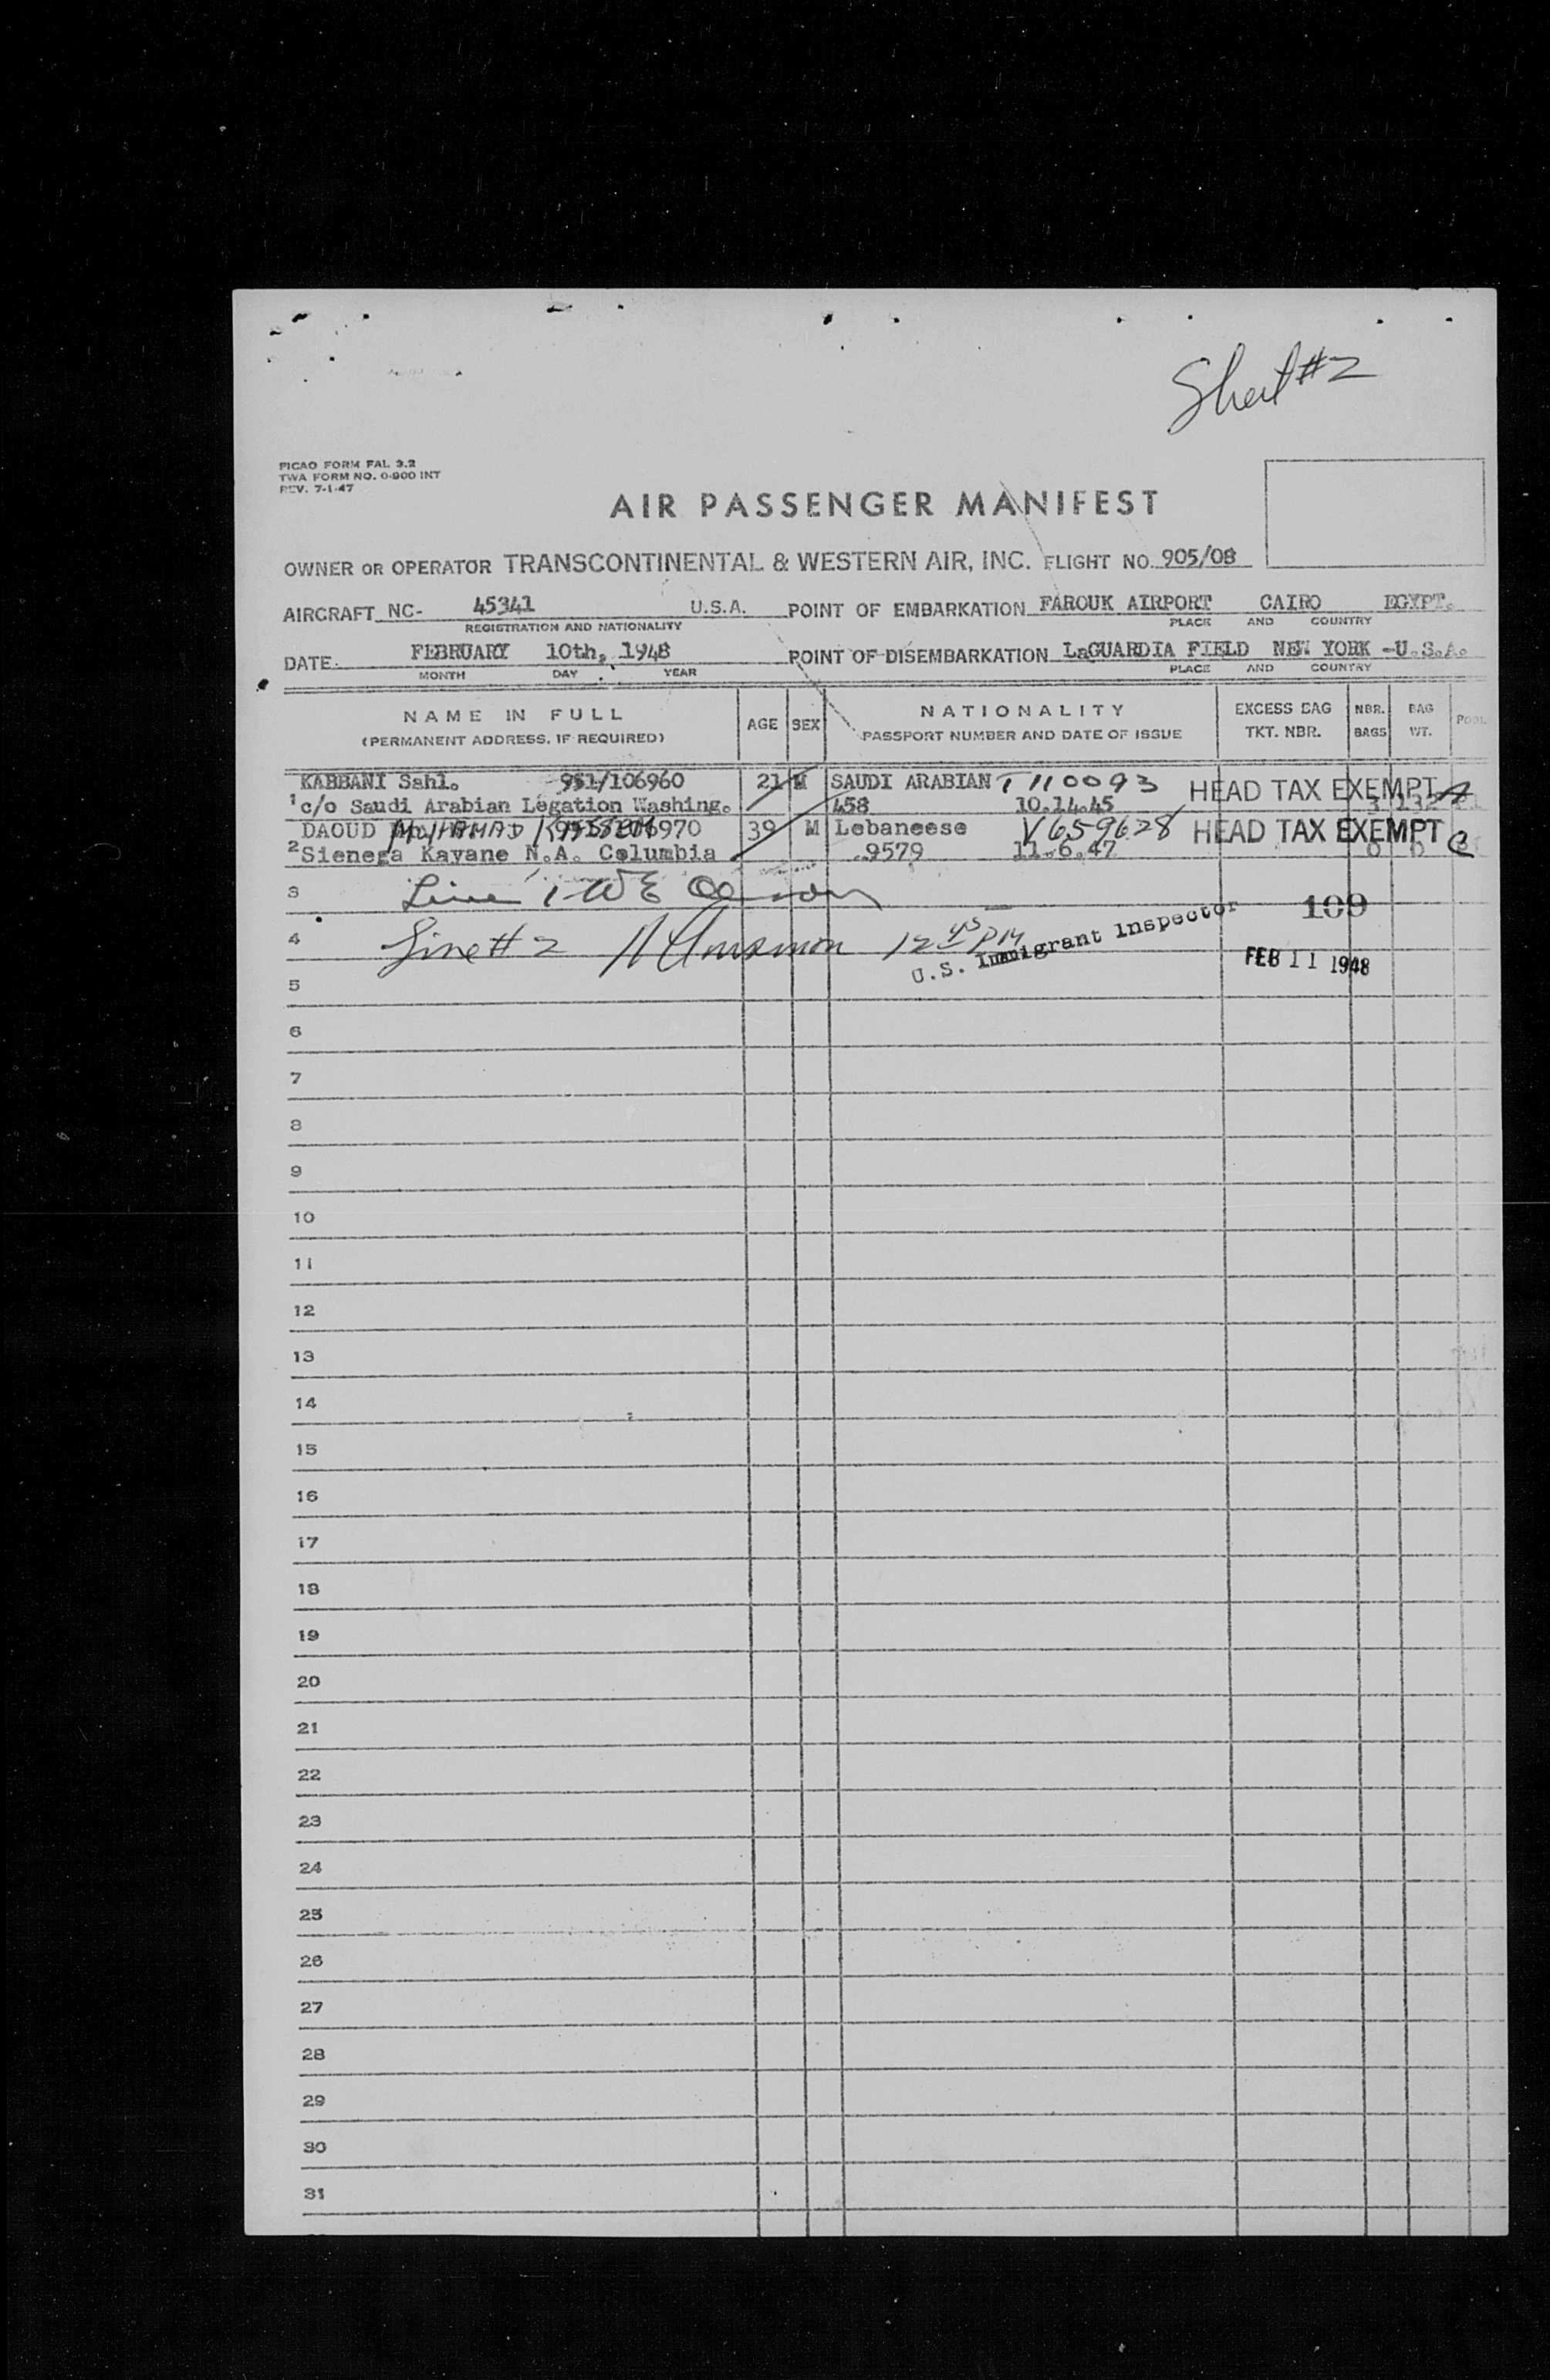 Sheet #2
PICAO FORM FAL 3.2
TWA FORM NO. 0-900 INT
REV. 7-1-47
AIR PASSENGER MANIFEST
OWNER OR OPERATOR TRANSCONTINENTAL & WESTERN AIR, INC. FLIGHT NO. 905/08
AIRCRAFT NC- 45341 U.S.A. POINT OF EMBARKATION FAROUK AIRPORT CAIRO EGYPT.
REGISTRATION AND NATIONALITY PLACE AND COUNTRY
DATE FEBRUARY 10th, 1948 POINT OF DISEMBARKATION LaGUARDIA FIELD NEW YORK -U.S.A.
MONTH DAY YEAR PLACE AND COUNTRY
NAME IN FULL AGE SEX NATIONALITY EXCESS BAG NBR. BAG POOL
(PERMANENT ADDRESS, IF REQUIRED) PASSPORT NUMBER AND DATE OF ISSUE TKT. NBR. BAGS WT.
KABBANI Sahl. 951/106960 21 M SAUDI ARABIAN T 110093 HEAD TAX EXEMPT
1 c/o Saudi Arabian Legation Washing. 458 10.14.45
DAOUD MOHAMAD 39 M Lebaneese V659628 HEAD TAX EXEMPT
2 Sienega Kavane N.A. Columbia 9579 11.6.47
3 Line 1 - WE
4 Line # 2 12 45 PM U.S. Immigrant Inspector 109
5 FEB 11 1948
6
7
8
9
10
11
12
13
14
15
16
17
18
19
20
21
22
23
24
25
26
27
28
29
30
31